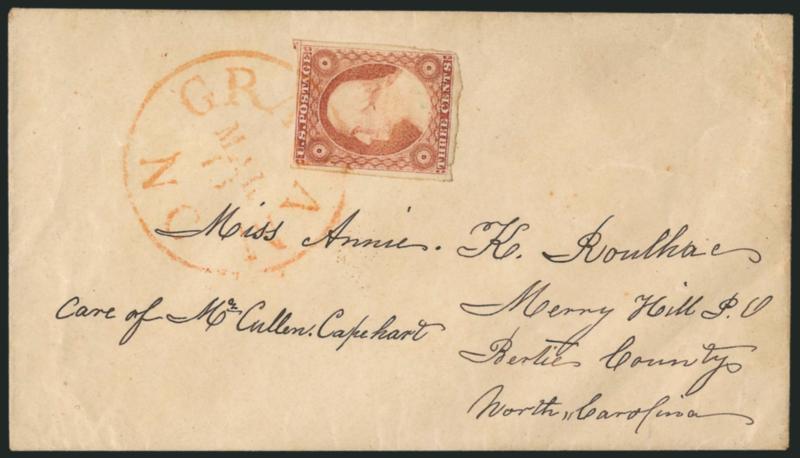 U.S. POSTAGE
THREE CENTS
N.C.
MAR
Miss Annie. K. Roulhac
Care of Mr. Cullen. Capehart
Merry Hill P. O
Bertie County
North Carolina